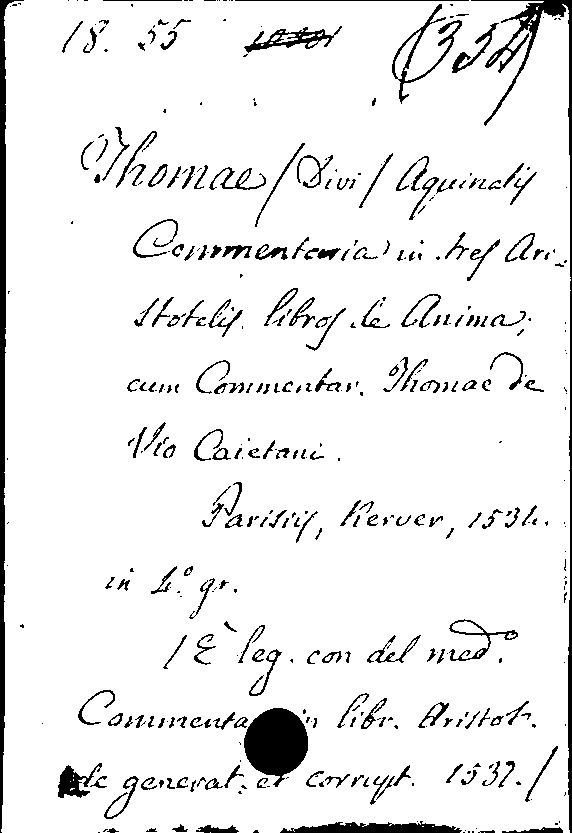 18. 55 (354)
Thomae / Divi / Aquinatis
Commentaria in tres Ari-
stotelis libros de Anima;
cum Commentar. Thomae de
Vio Caietani.
Parisiis, Kerver, 1534.
in 4.° gr.
/ È leg. con del med.°
Commenta in libr. Aristot.
de generat. et corrupt. 1532. /